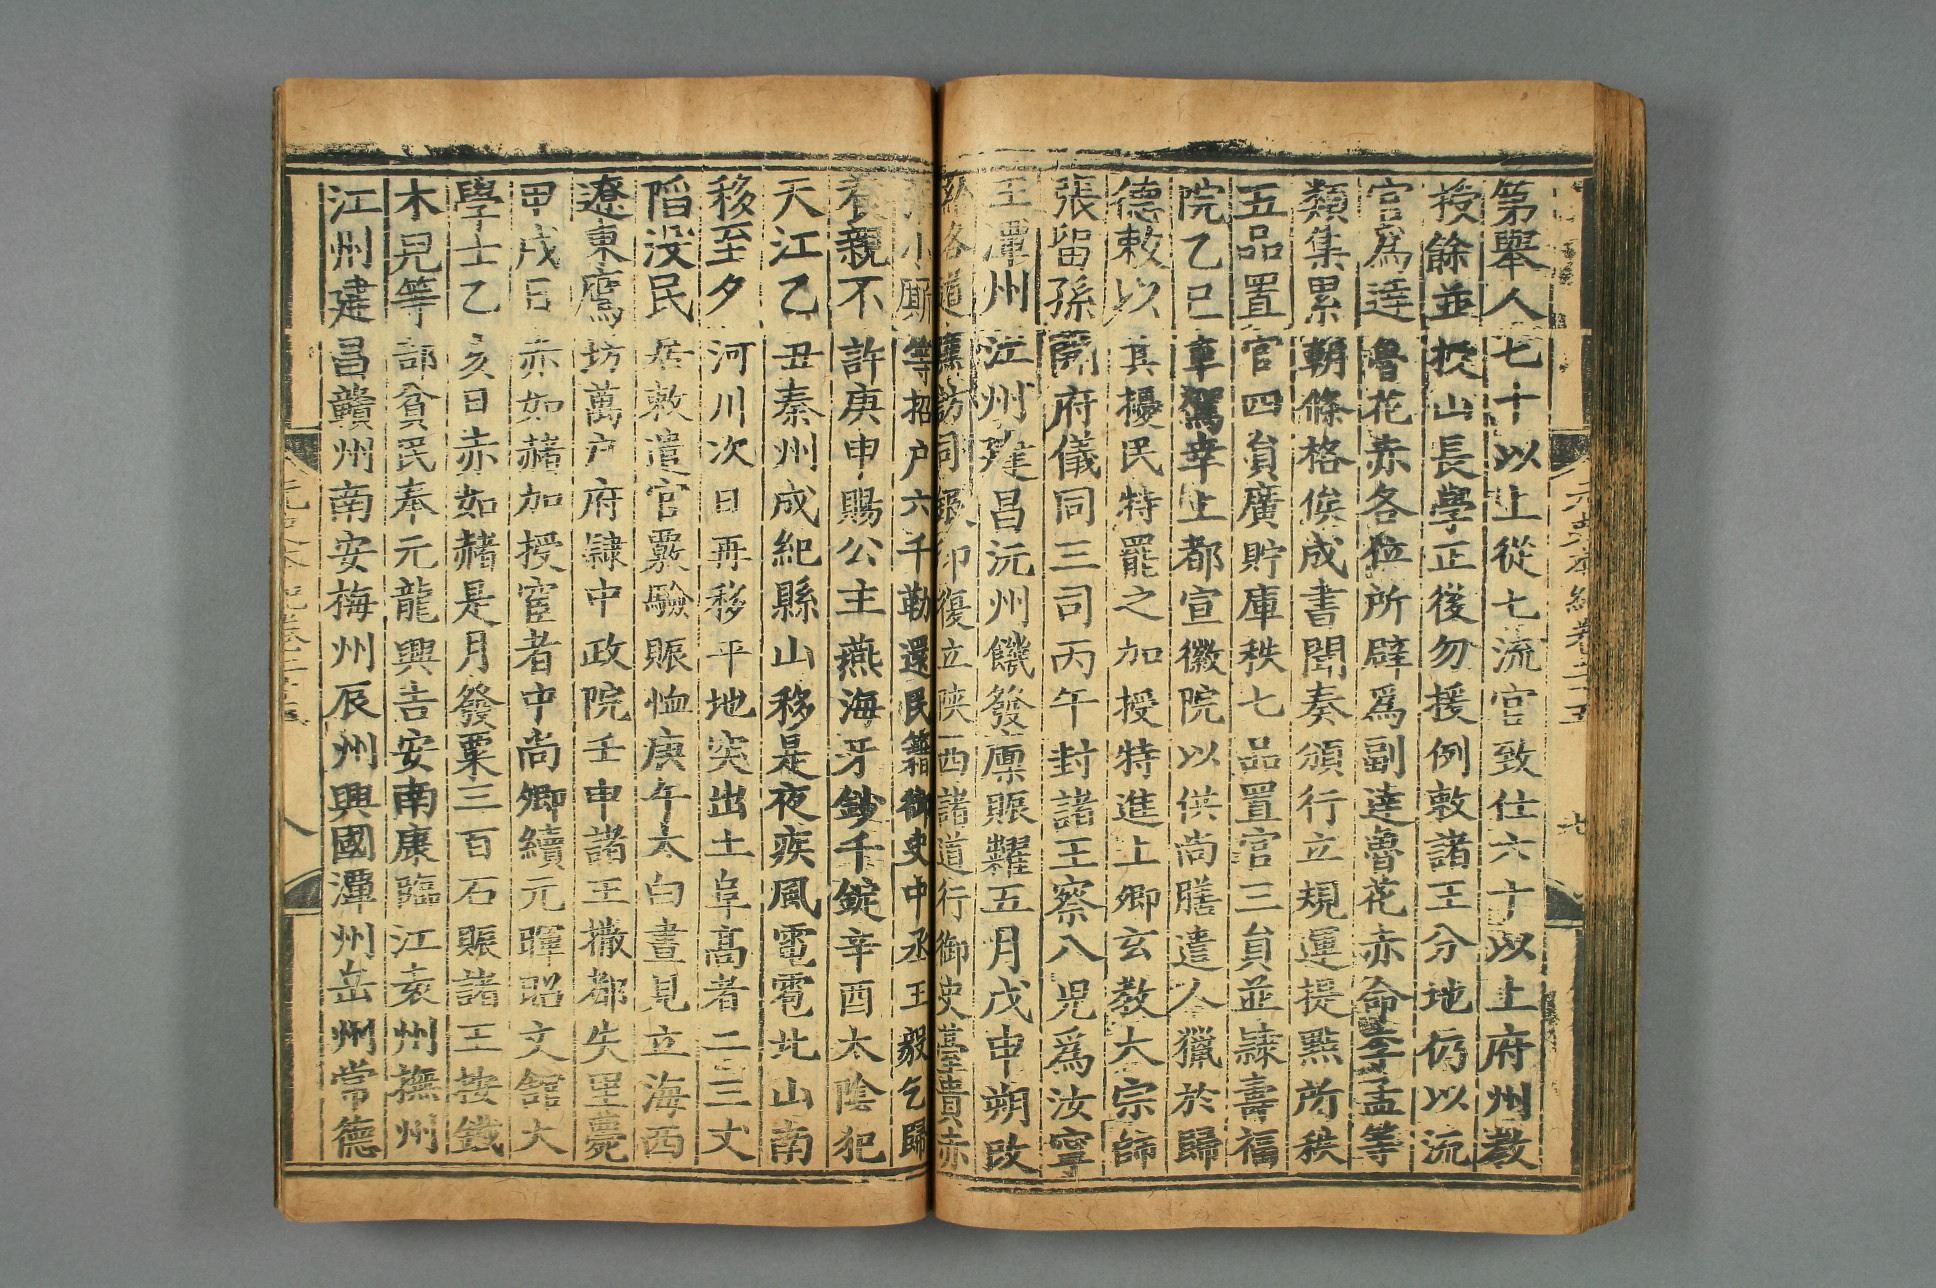 第舉人七十以上從七流官致仕六十以上府州教
授餘並授山長學正後勿援例敕諸王分地仍以流
官爲達魯花赤各位所辟爲副達魯花赤命李孟等
類集累朝條格俟成書聞奏頒行立規運提點所秩
五品置官四員廣貯庫秩七品置官三員並隸壽福
院乙巳車駕幸上都宣徽院以供尚膳遣人獵於歸
德敕以其擾民特罷之加授特進上卿玄教大宗師
張留孫開府儀同三司丙午封諸王察八児爲汝寧
王潭州江州建昌沅州饑發廩賑糶五月戊申朔改
給各道廉訪司銀印復立陝西諸道行御史臺賞赤
小厮等招户六千勒還民籍御史中丞王毅乞歸
養親不許庚申賜公主燕海牙鈔千錠辛酉太陰犯
天江乙丑秦州成紀縣山移是夜疾風電雹北山南
移至夕河川次日再移平地突出土阜高者二三丈
陷没民居敕遣官覈驗賑恤庚午太白晝見立海西
遼東鷹坊萬户府隸中政院壬申諸王撒都失里薨
甲戌日赤如赭加授宦者中尚卿續元暉昭文館大
學士乙亥日赤如赭是月發粟三百石賑諸王按鐵
木兒等部貧民奉元龍興吉安南康臨江袁州撫州
江州建昌贛州南安梅州辰州興國潭州岳州常德
元史本紀卷二十五
八